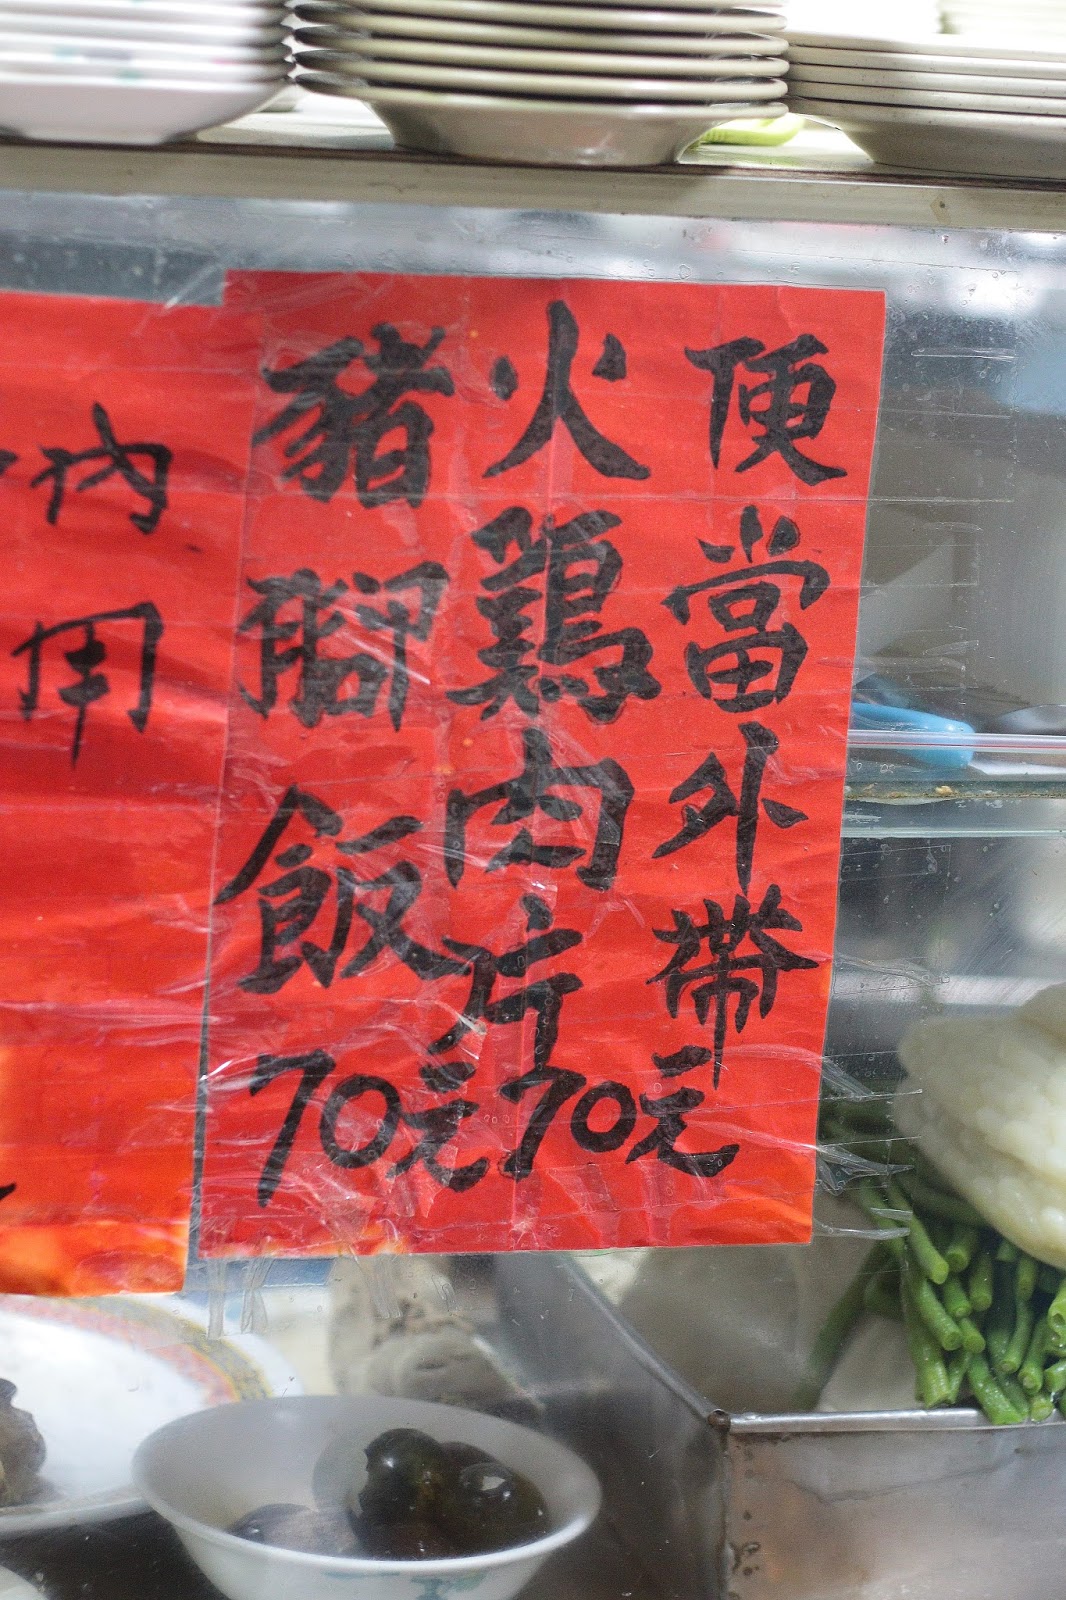 便當外帶
火鷄肉片70元
豬腳飯70元
內用